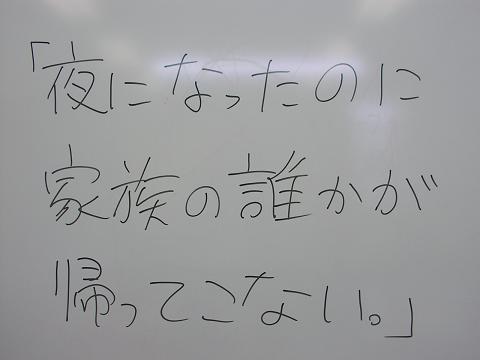 「夜になったのに
家族の誰かが
帰ってこない。」